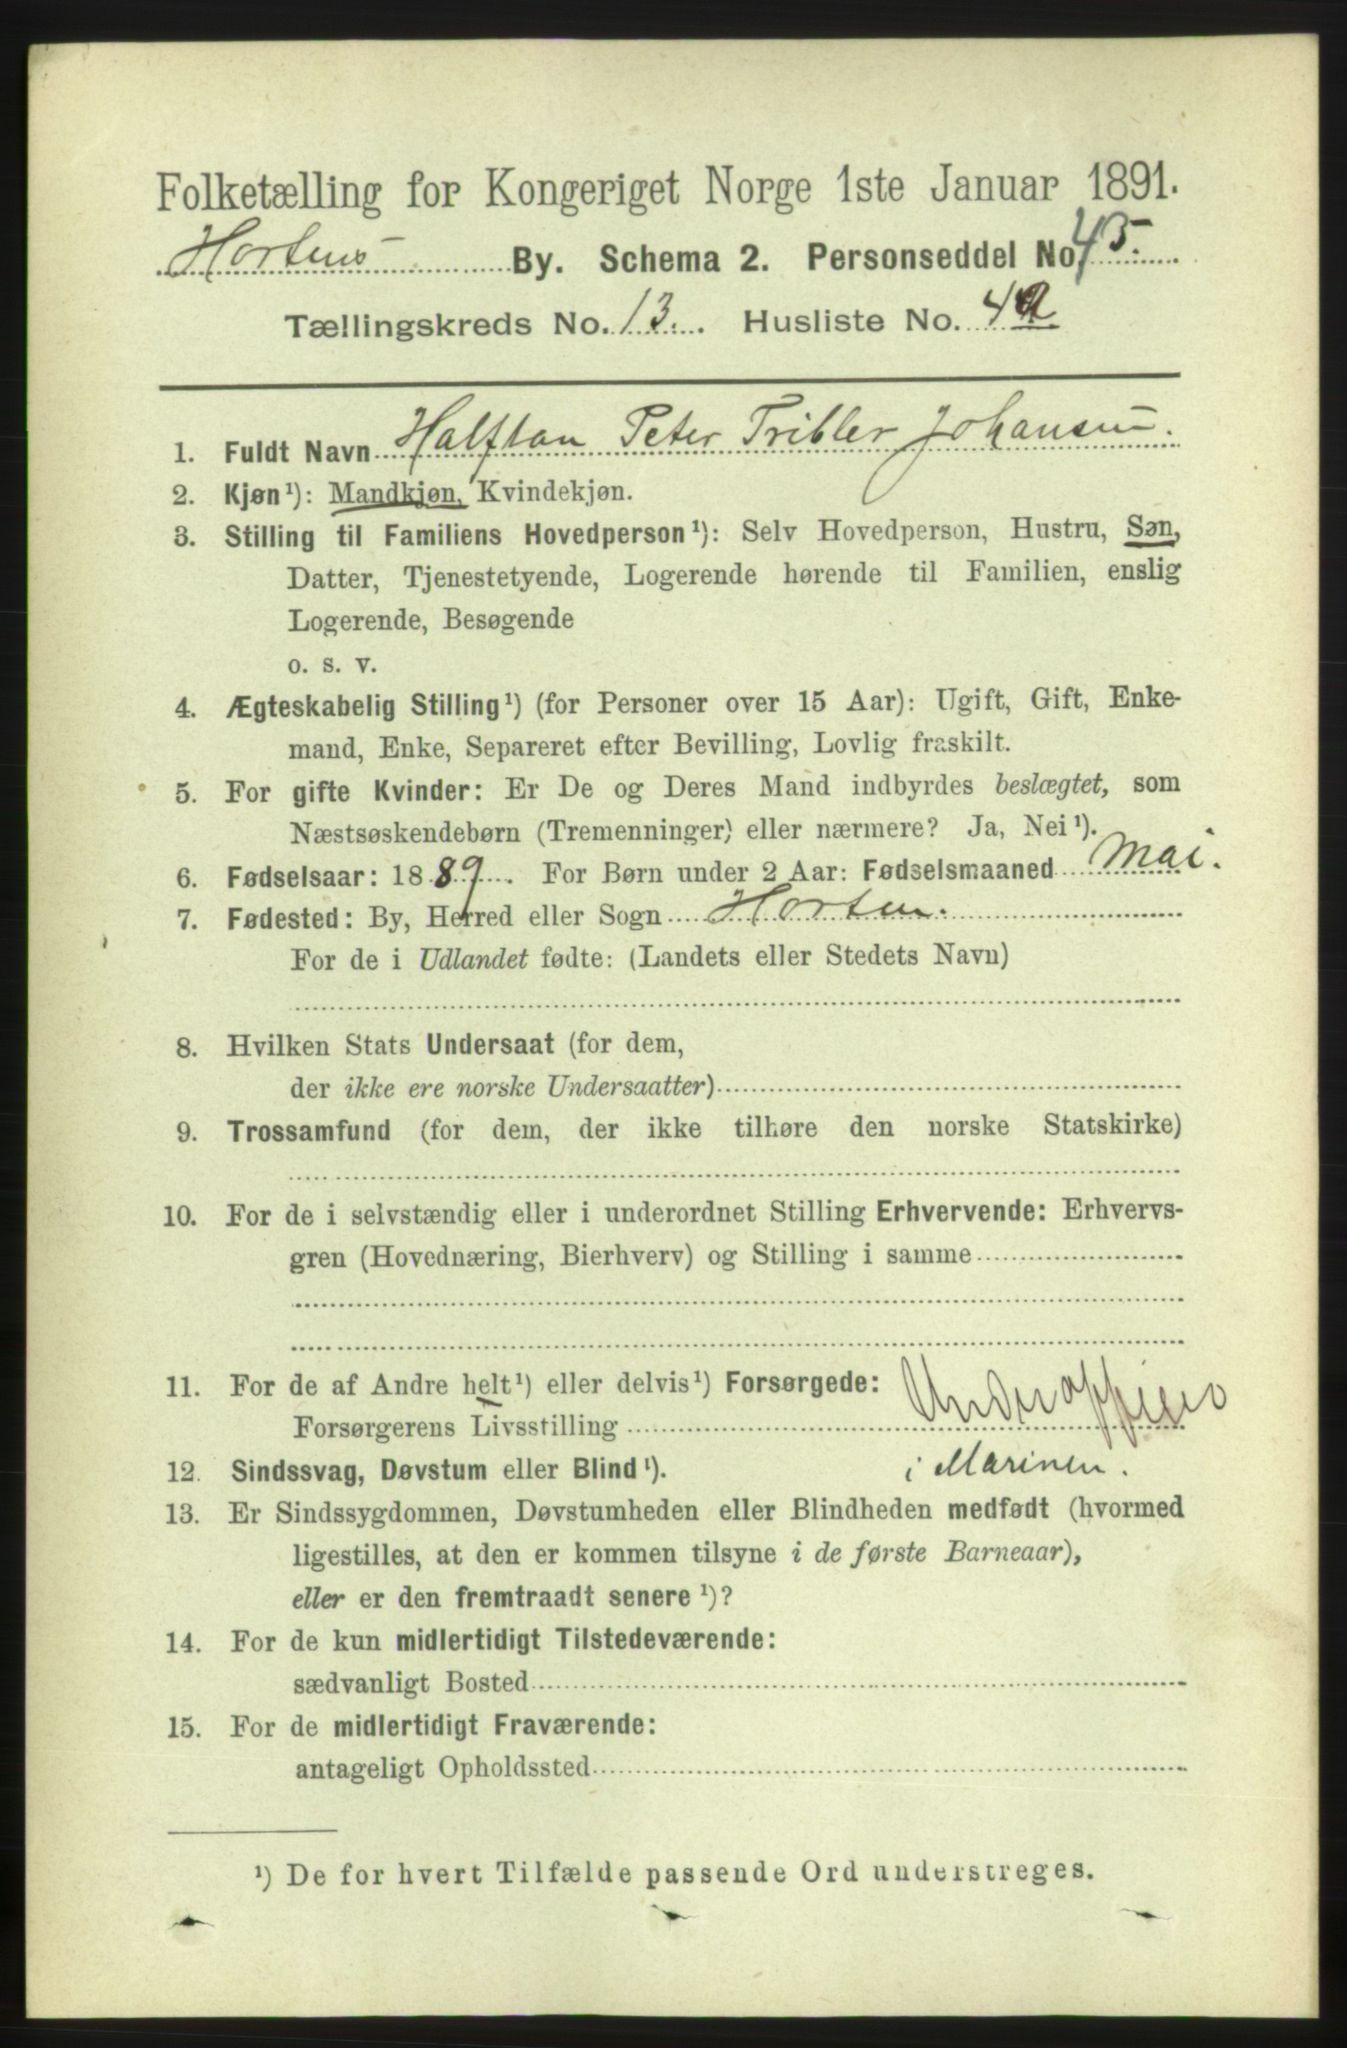 Folketælling for Kongeriget Norge 1ste Januar 1891.
Hortens By. Schema 2. Personseddel No 45.
Tællingskreds No. 13. Husliste No. 42
1. Fuldt Navn Halfdan Peter Tribler Johansen.
2. Kjøn¹): Mandkjøn, Kvindekjøn.
3. Stilling til Familiens Hovedperson¹): Selv Hovedperson, Hustru, Søn,
Datter, Tjenestetyende, Logerende hørende til Familien, enslig
Logerende, Besøgende
o. s. v.
4. Ægteskabelig Stilling¹) (for Personer over 15 Aar): Ugift, Gift, Enke-
mand, Enke, Separeret efter Bevilling, Lovlig fraskilt.
5. For gifte Kvinder: Er De og Deres Mand indbyrdes beslægtet, som
Næstsøskendebørn (Tremenninger) eller nærmere? Ja, Nei¹).
6. Fødselsaar: 1889. For Børn under 2 Aar: Fødselsmaaned Mai.
7. Fødested: By, Herred eller Sogn Horten.
For de i Udlandet fødte: (Landets eller Stedets Navn)
8. Hvilken Stats Undersaat (for dem,
der ikke ere norske Undersaatter)
9. Trossamfund (for dem, der ikke tilhøre den norske Statskirke)
10. For de i selvstændig eller i underordnet Stilling Erhvervende: Erhvervs-
gren (Hovednæring, Bierhverv) og Stilling i samme
11. For de af Andre helt¹) eller delvis¹) Forsørgede:
Forsørgerens Livsstilling
12. Sindssvag, Døvstum eller Blind¹). i Marinen.
13. Er Sindssygdommen, Døvstumheden eller Blindheden medfødt (hvormed
ligestilles, at den er kommen tilsyne i de første Barneaar),
eller er den fremtraadt senere¹)?
14. For de kun midlertidigt Tilstedeværende:
sædvanligt Bosted
15. For de midlertidigt Fraværende:
antageligt Opholdssted
¹) De for hvert Tilfælde passende Ord understreges.